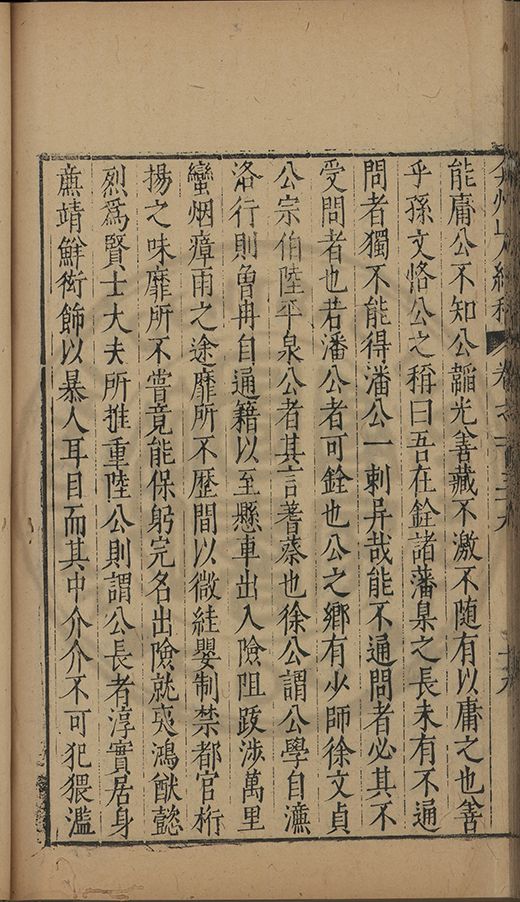 州山人續稿 卷之一百三十
能庸公不知公韜光善藏不激不随有以庸之也善
乎孫文恪公之稱曰吾在銓諸藩臬之長未有不通
問者獨不能得潘公一刺异哉能不通問者必其不
受問者也若潘公者可銓也公之鄉有少師徐文貞
公宗伯陸平泉公者其言蓍蔡也徐公謂公學自濂
洛行則魯冉自通籍以至懸車出入險阻跋涉萬里
蠻烟瘴雨之途靡所不歷間以微絓嬰制禁都官桁
揚之味靡所不嘗竟能保躬完名出險就夷鴻猷懿
烈爲賢士大夫所推重陸公則謂公長者淳實居身
廉靖鮮衒飾以暴人耳目而其中介介不可犯猥濫